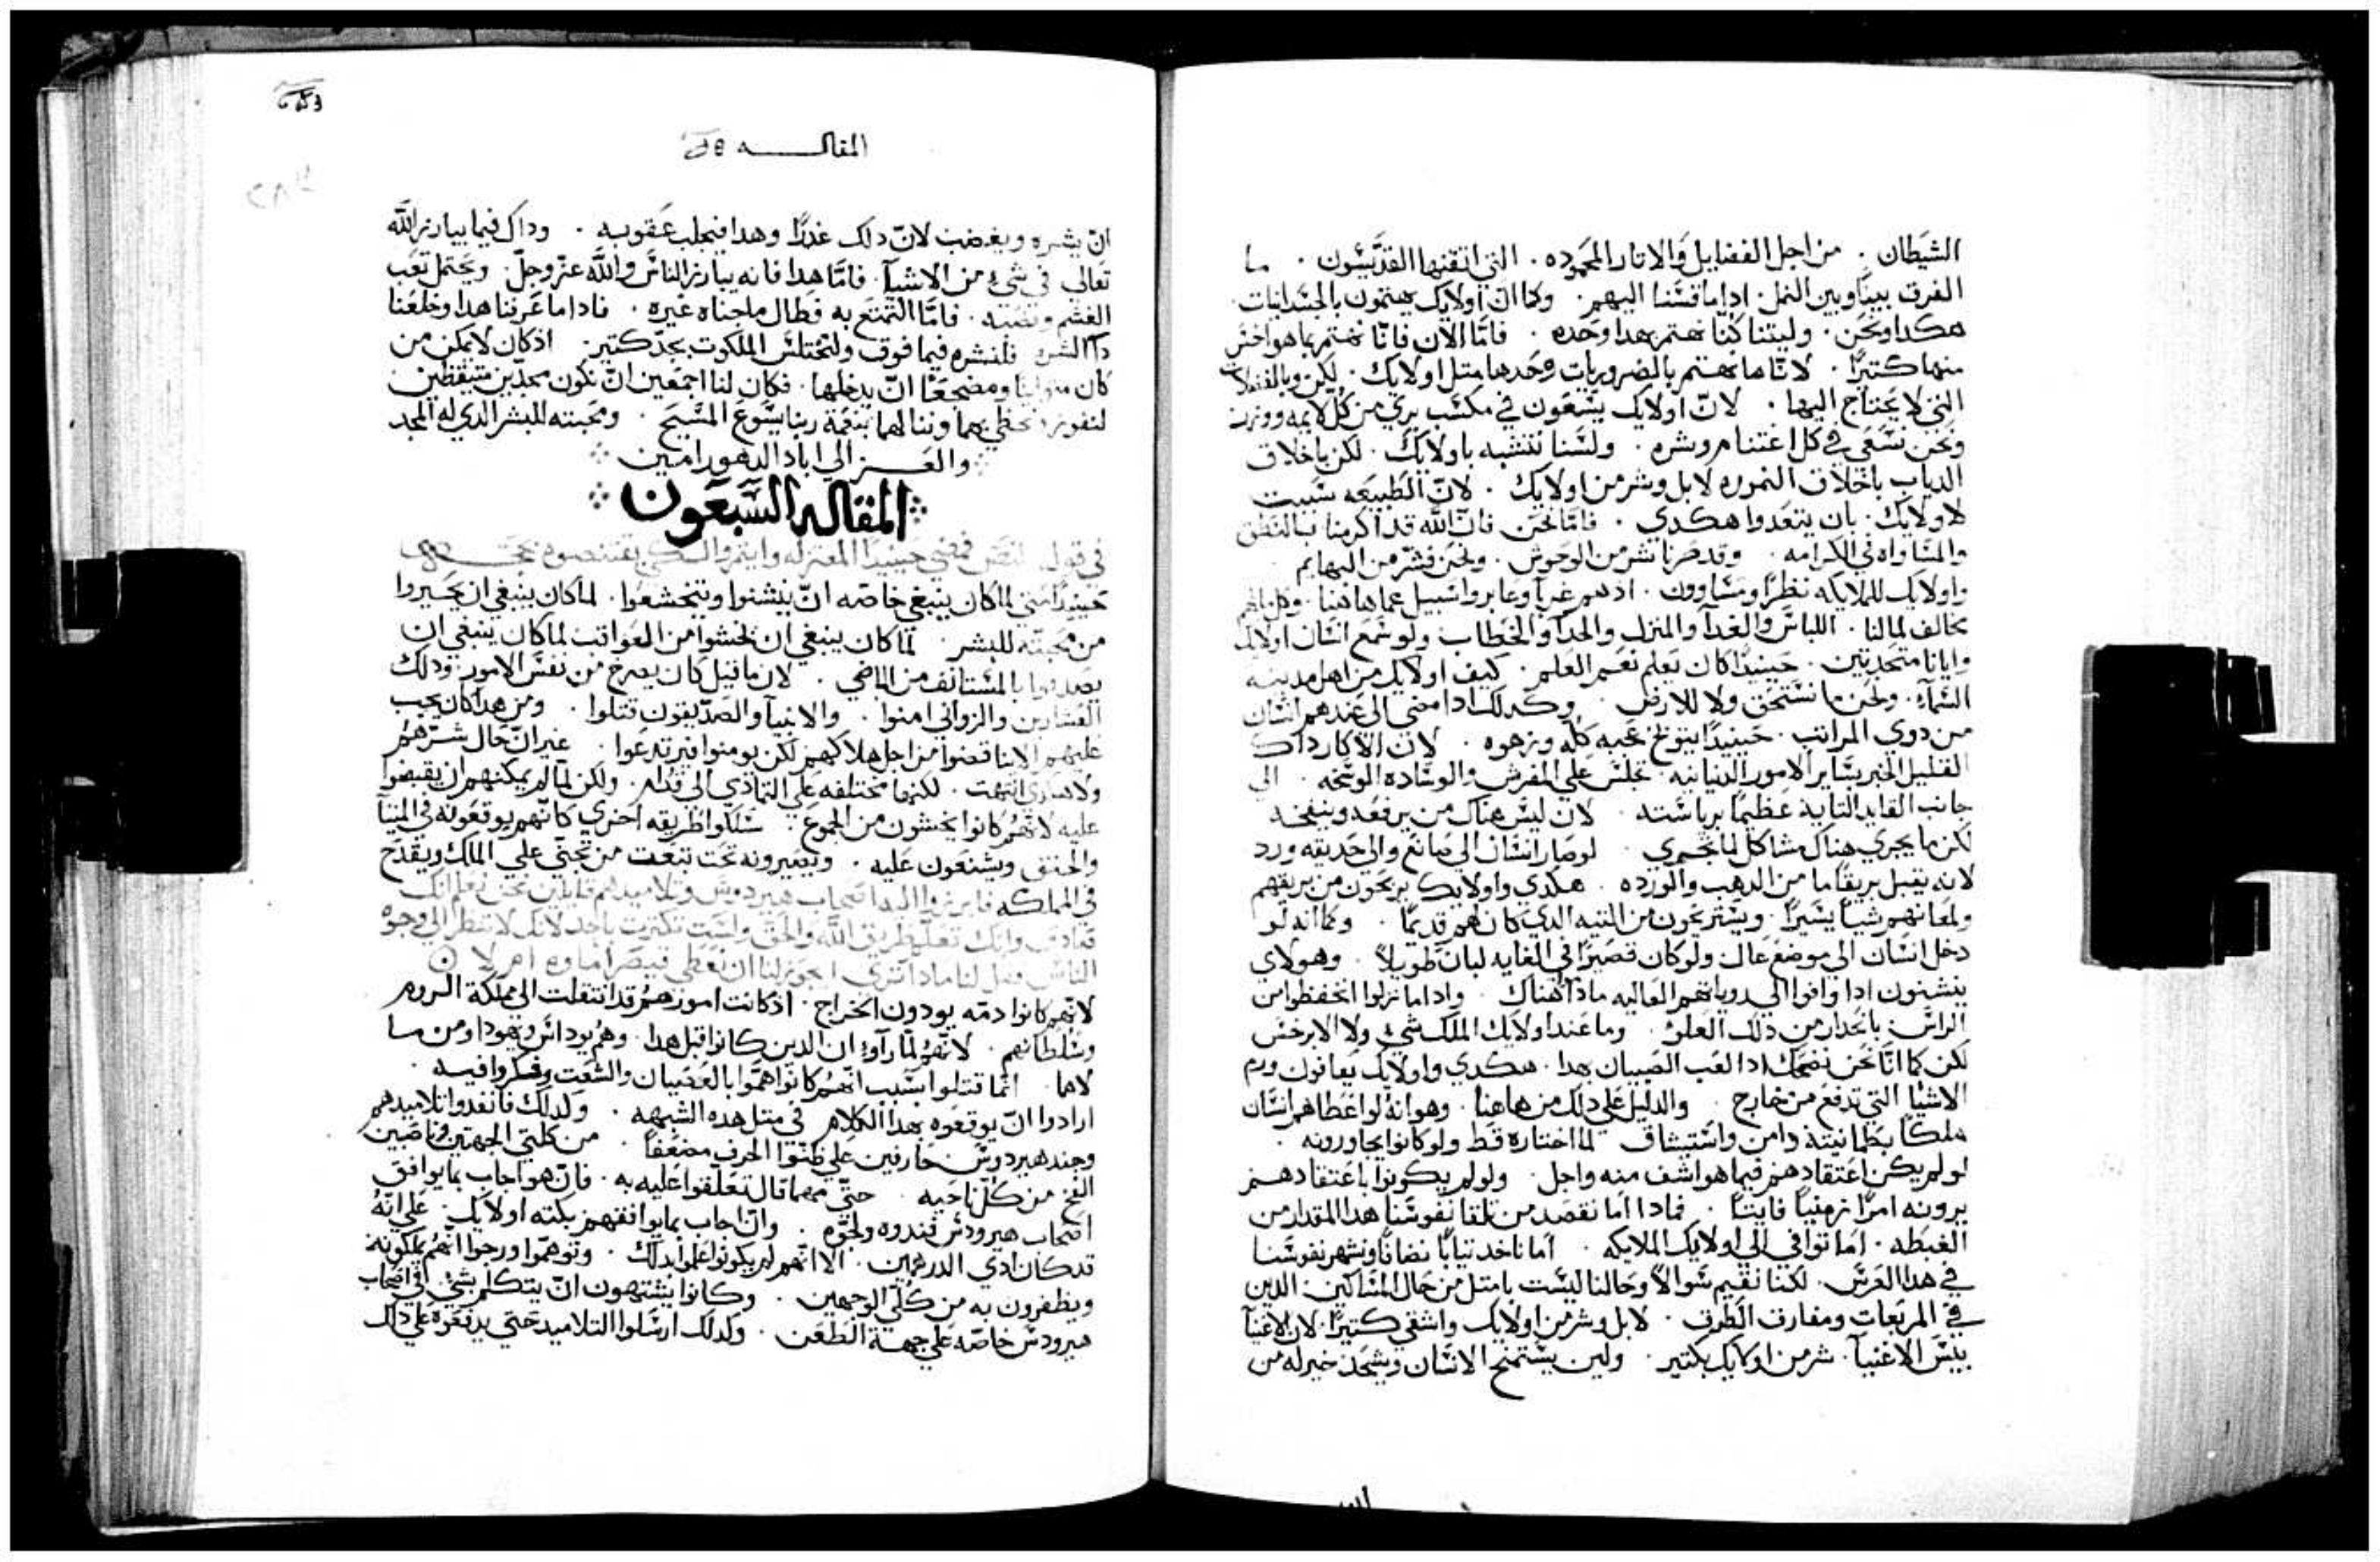 الشيطان . من اجل الفضايل والاتار المحموده . التي اتقنها القديسون . ما
الفرق بيننا وبين النمل . اذا ما قسنا اليهم . وكما ان اولايك يهتمون بالجسدانيات .
هكدا ونحن . وليتنا كنا نهتم بهدا وحده . فاما الان فانا نهتم بما هو اخس
منها كتيرًا . لانا ما نهتم بالضروريات وحدها متل اولايك . لكن وبالفضلات
التي لا يحتاج اليها . لان اولايك يسعون في مكسب بري من كل لايمه
ونحن نسعى في كل اغتنام وشره . ولسنا نتشبه باولايك . لكن باخلاق
الدياب باخلاق النموره لا بل وشر من اولايك . لان الطبيعه سببت
لاولايك . بان يتغدوا هكدي . فاما نحن فان الله قد اكرمنا بالنطق
والمساواه في الكرامه . وقد صرنا شر من الوحوش . ونحن فشر من البهايم
واولايك للملايكه نظرًا ومساوون . اذ هم غربا وعابروا سبيل عما هاهنا . وكل ما لهم
مخالف لما لنا . اللباس والغدآ والمنزل والحدآ والخطاب ولو سمع انسان اولايك
وايانا متحدتين . حينيدًا كان يعلم نعم العلم . كيف اولايك من اهل مدينة
السمآء . ونحن ما نستحق ولا للارض . وكدلك ادا مضى الى عندهم انسان
من دوي المراتب . حينيدًا يتوبخ عجبه كله وزهوه . لان الاكار داك
القليل الخبر بساير الامور الدنيانيه . يجلس على المفرش والوساده الوسخه . الى
جانب القايد التايه عظيمًا برياسته . لان ليس هناك من يرفعه وينفخه
لكن ما يجري هناك مشاكل لما يجري . لو صار انسان الى صانع والى حديقه ورد
لانه يقبل بريقًا ما من الدهب والورده . هكدي واولايك يربحون من بريقهم
ولمعانهم شيا يسيرًا . ويستريحون من التيه الدي كان لهم قديمًا . وكما انه لو
دخل انسان الى موضع عال ولو كان قصيرًا في الغايه لبان طويلاً . وهولاي
ادا وافوا الى روياتهم العاليه ماداموا هناك . وادا ما نزلوا انخفضوا من
الراس بانحدار من دلك العلو . وما عند اولايك الملك شي ولا الابرخس
لكن كما انا نحن نضحك ادا لعب الصبيان بهدا . هكدي واولايك يعافون ورم
الاشيا التي تدفع من خارج . والدليل على دلك من هاهنا . وهو انه لو اعطاهم انسان
ملكًا بطمانينة دامن واستيشاق لما اختاره قط ولو كانوا يجاورونه .
لو لم يكن اعتقادهم فيما هو اشف منه واجل . ولو لم يكونوا باعتقادهم
يرونه امرًا زمنيًا فايتًا . فمادا اما نقصد من تلقا نفوسنا هدا المقدار من
الغبطه . اما توافي الى اولايك الملايكه . اما ناخد تيابًا نضافًا ونشهر نفوسنا
في هدا العرس . لكنا نقيم سوالاً وحالنا ليست بامتل من حال المساكين . الدين
في المربعات ومفارق الطرق . لا بل وشر من اولايك واشقى كتيرًا . لان الاغنيا
بيس الاغنيآ . شر من اولايك بكتير . ولين يستمنح الانسان ويشحد خير له من
المقالـــــه
ان يشره ويغضب لان دلك عدرًا وهدا فيجلب عقوبه . وداك فيما يبارز الله
تعالى في شيء من الاشيآ . فاما هدا فانه يبارز الناس والله عز وجل . ويحتمل تعب
الغشم . فاما التمتع به فطال ما جناه غيره . فادا ما عرفنا هدا وخلعنا
دا الشره فلنشره فيما فوق ولنختلس الملكوت بجد كتير . اذ كان لا يمكن من
كان متوانيًا ومضجعًا ان يدخلها . فكان لنا اجمعين ان نكون مجدين متيقظين
لنفوز ونحظى بهما وننالهما بنعمة ربنا يسوع المسيح . ومحبته للبشر الدي له المجد
والعـــز الى اباد الدهور امين
المقاله السبعون
في قول النص فمضى حينيدًا المعتزله وايتمروا لكي يقتنصوه بحجـــه
حينيدًا متى لما كان ينبغي خاصه ان ينتنوا ويتخشعوا . لما كان ينبغي ان يتحيروا
من محبته للبشر . لما كان ينبغي ان يخشوا من العواقب لما كان ينبغي ان
يصدقوا بالمستانف من الماضي . لان ما قيل كان يصرخ من نفس الامور . ودلك
العشارين والزواني امنوا . والانبيآ والصديقون قتلوا . ومن هدا كان يجب
عليهم الا يناقضوا من اجل هلاكهم لكن يومنوا فيرتدعوا . غير ان حال شرهم
ولا هكدي انتهت . لكنها مختلفه على التمادي الى قدام . ولكن لما لم يمكنهم ان يقبضوا
عليه لانهم كانوا يخشون من الجموع . سلكوا طريقه اخرى كانهم يوقعونه في
والحنق ويشنعون عليه . ويصيرونه تحت تبعت من تجنى على الملك ويقدح
في المملكه فارسلوا اليه اصحاب هيرودس وتلاميدهم قايلين نحن نعلم انك
صادق وانك تعلم طريق الله والحق ولست تكترت باحد لانك لا تنظر الى وجوه
الناس فقل لنا مادا ترى ايجوز لنا ان نعطى قيصر اتاوه ام لا ⊙
لانهم كانوا دمّه يودون الخراج . اذ كانت امورهم قد انتقلت الى مملكة الروم
وسلطانهم . لانهم لما رآوا ان الدين كانوا قبل هدا . وهم يوداس ويهودا ومن ما
لاها . انما قتلوا بسبب انهم كانوا هموا بالعصيان والشعت وفكروا فيه .
ارادوا ان يوقعوه بهدا الكلام في متل هده الشبهه . ولدلك فانفدوا تلاميدهم
وجند هيرودس جارفين على ظنوا الجرف مضعفاً . من كلتي الجهتين وناصبين
الفخ من كل ناحيه . حتى مهما قال تعلقوا عليه به . فان هو اجاب بما يوافق
اصحاب هيرودس فندوه . وان اجاب بما يوافقهم بكته اولايك . على انه
قد كان ادى الدرهمين . الا انهم لم يكونوا علموا بدلك . وتوهموا ورجوا انهم يملكونه
ويظفرون به من كلي الوجهين . وكانوا يشتهون ان يتكلم بشي في اصحاب
هيرودس خاصه على جهة الطعن . ولدلك ارسلوا التلاميد حتى يدفعوه على دلك